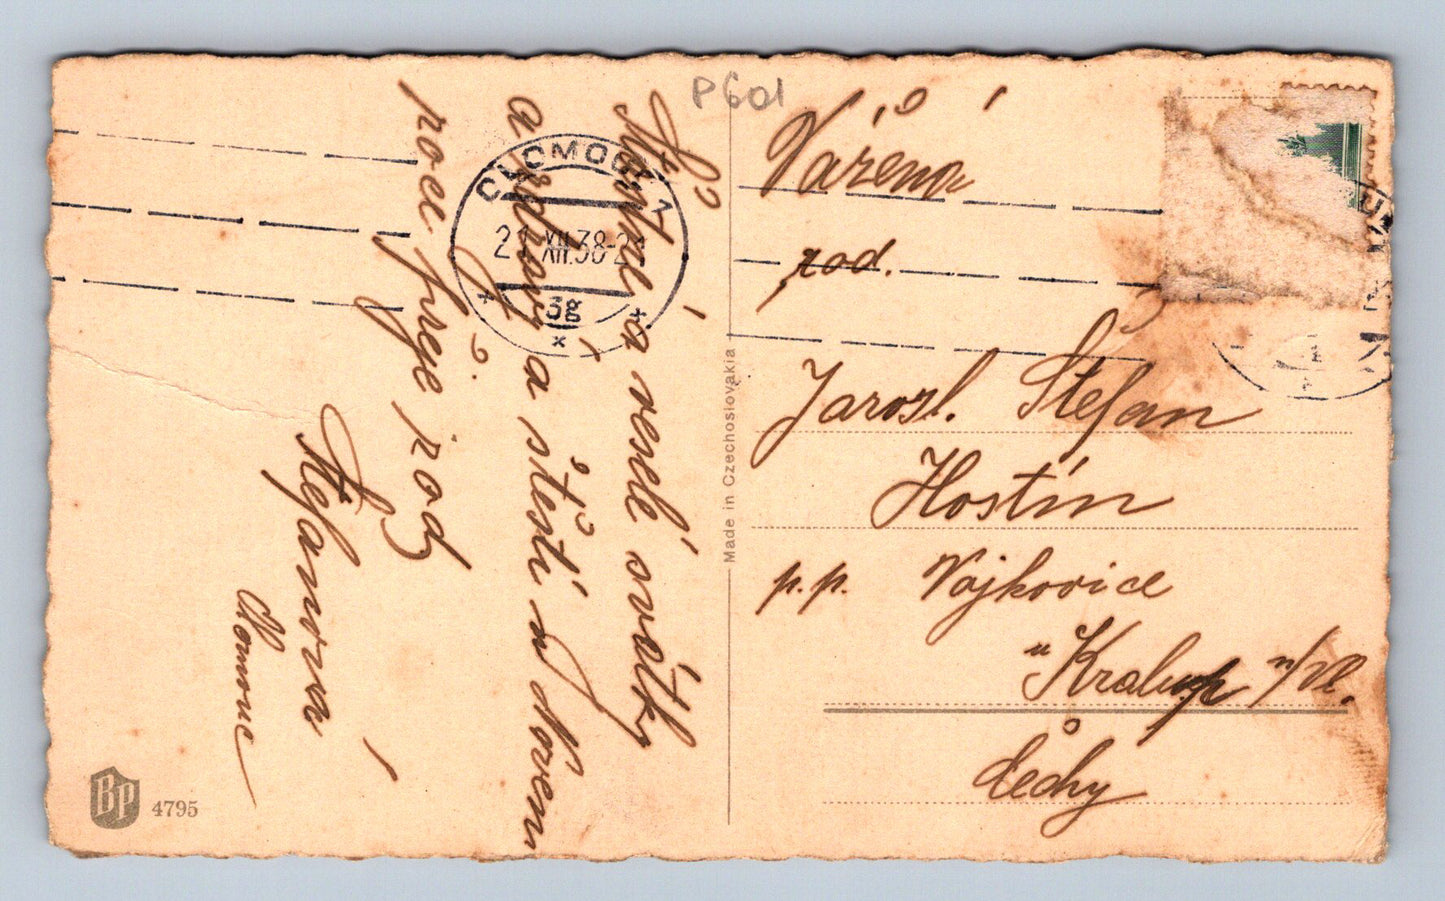 P601
Šťastné a veselé svátky
a zdraví a štěstí v Novém
roce přeje rod.
Štefanova
Olomouc
OLOMOUC 1
21.XII.38-21
3g
Made in Czechoslovakia
BP 4795
Vážená
rod.
Jarosl. Štefan
Hostín
p.p. Vojkovice
u Kralup n/Vl.
Čechy